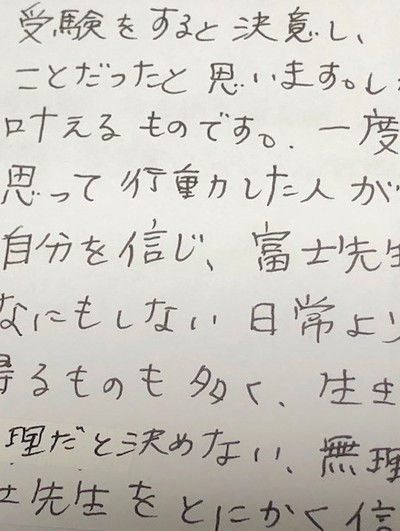 受験をすると決意し、
ことだったと思います。し
叶えるものです。一度
思って行動した人が
自分を信じ、富士先生
なにもしない日常より
得るものも多く、生
理だと決めない、無理
士先生をとにかく信